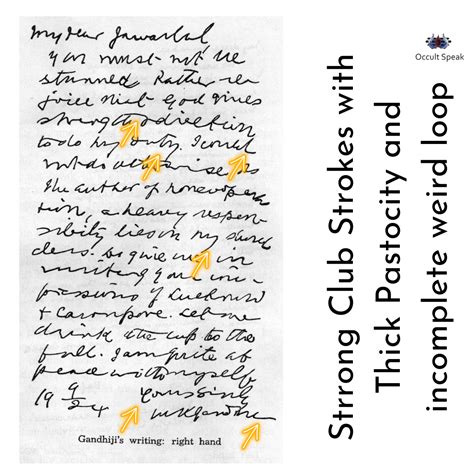 My dear Jawarlal
You must not be
stunned. Rather re-
joice that God gives
strength & direction
to do my duty. I could
not do otherwise as
the author of noncoopera
tion, a heavy respon-
sibility lies on my shoul
ders. Do give me in
writing your im-
pressions of Lucknow
& Cawnpore. Let me
drink the cup to the
full. I am quite at
peace with myself
19 9/24 Yours Sincly
MKGandhi
Gandhiji's writing: right hand
Occult Speak
Strrong Club Strokes with
Thick Pastocity and
incomplete weird loop